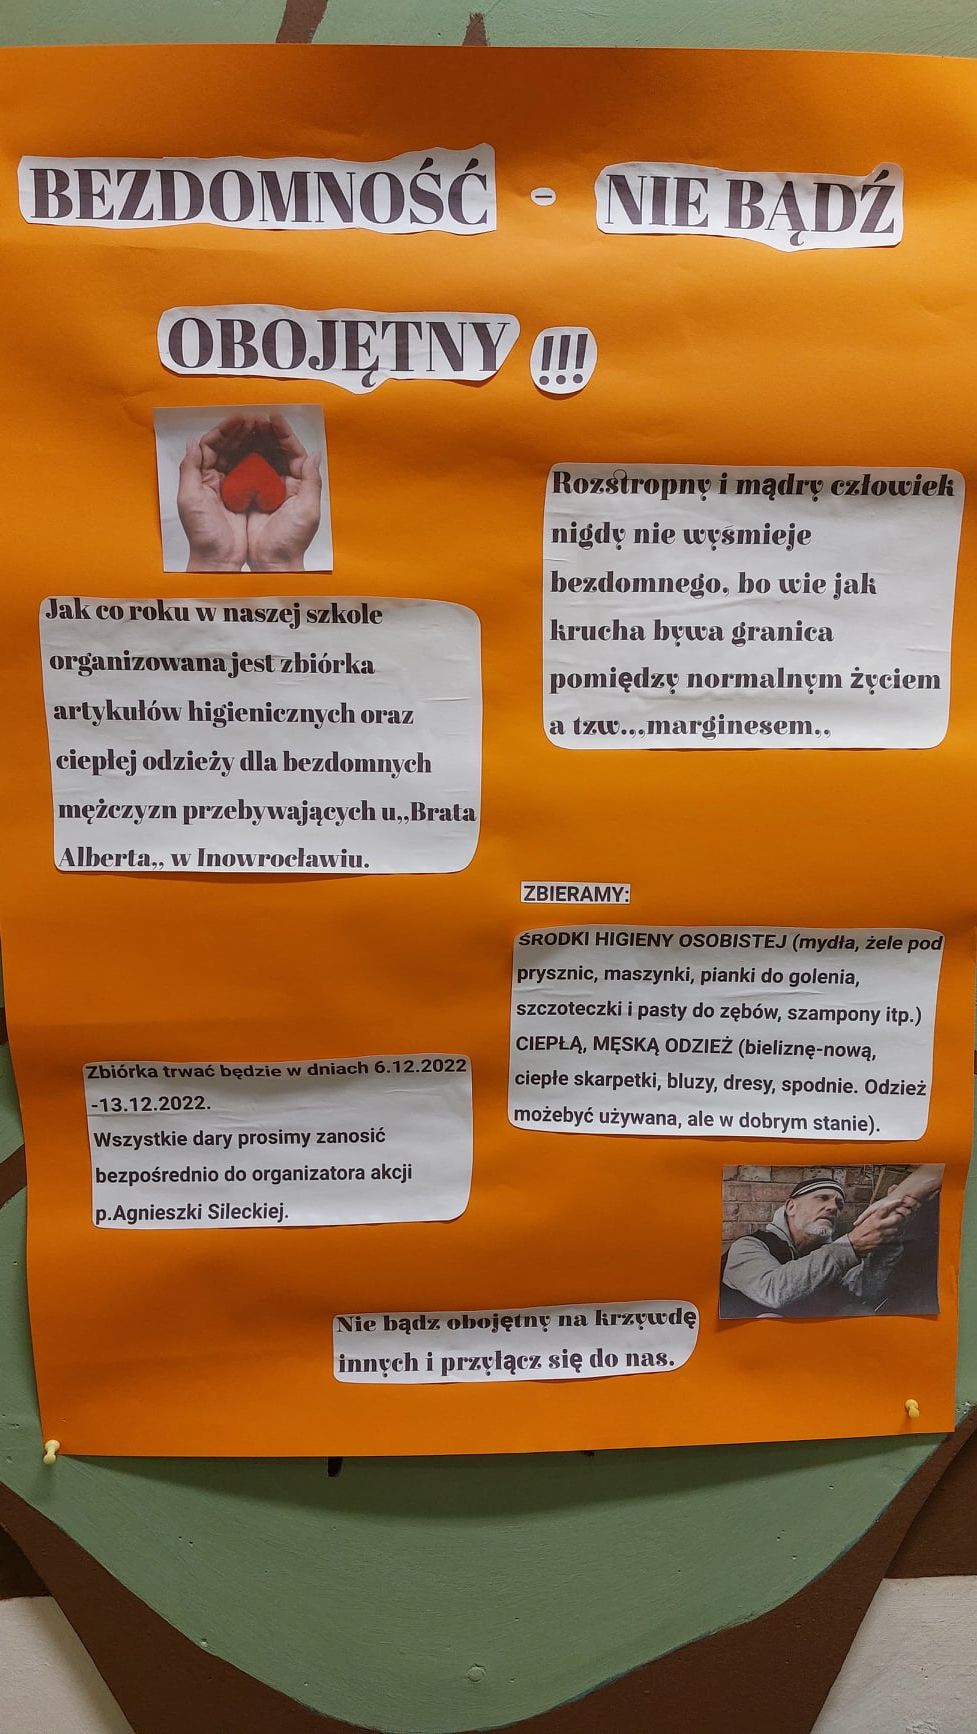 BEZDOMNOŚĆ - NIE BĄDŹ
OBOJĘTNY !!!
Rozstropny i mądry człowiek
nigdy nie wyśmieje
bezdomnego, bo wie jak
krucha bywa granica
pomiędzy normalnym życiem
a tzw.,,marginesem,,
Jak co roku w naszej szkole
organizowana jest zbiórka
artykułów higienicznych oraz
ciepłej odzieży dla bezdomnych
mężczyzn przebywających u,,Brata
Alberta,, w Inowrocławiu.
ZBIERAMY:
ŚRODKI HIGIENY OSOBISTEJ (mydła, żele pod
prysznic, maszynki, pianki do golenia,
szczoteczki i pasty do zębów, szampony itp.)
CIEPŁĄ, MĘSKĄ ODZIEŻ (bieliznę-nową,
ciepłe skarpetki, bluzy, dresy, spodnie. Odzież
możebyć używana, ale w dobrym stanie).
Zbiórka trwać będzie w dniach 6.12.2022
-13.12.2022.
Wszystkie dary prosimy zanosić
bezpośrednio do organizatora akcji
p.Agnieszki Sileckiej.
Nie bądz obojętny na krzywdę
innych i przyłącz się do nas.